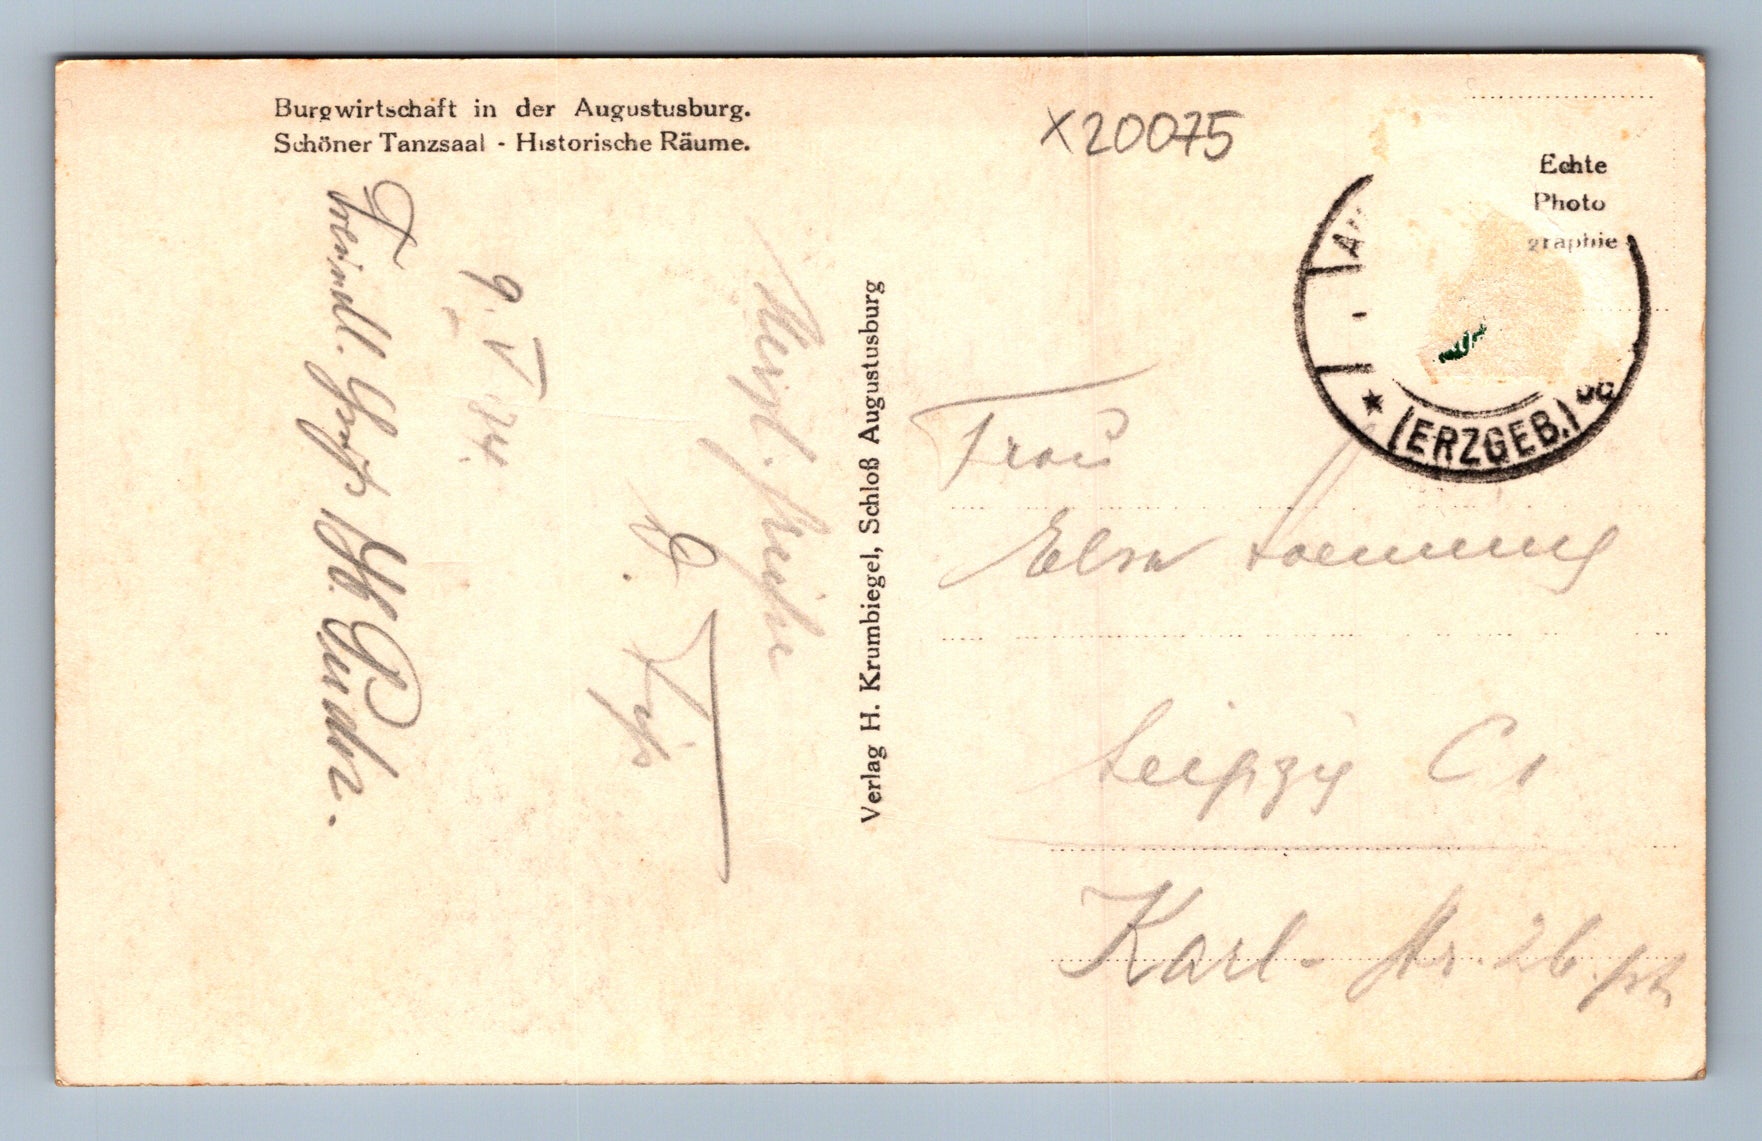 Burgwirtschaft in der Augustusburg.
Schöner Tanzsaal - Historische Räume.
X20075
Echte
Photo
graphie
(ERZGEB.)
Verlag H. Krumbiegel, Schloß Augustusburg
9. V 34.
Herzl. Grüße
Freundl. Gruß
Frau
Elsa
Leipzig C1
Karl- Str. 26. pt